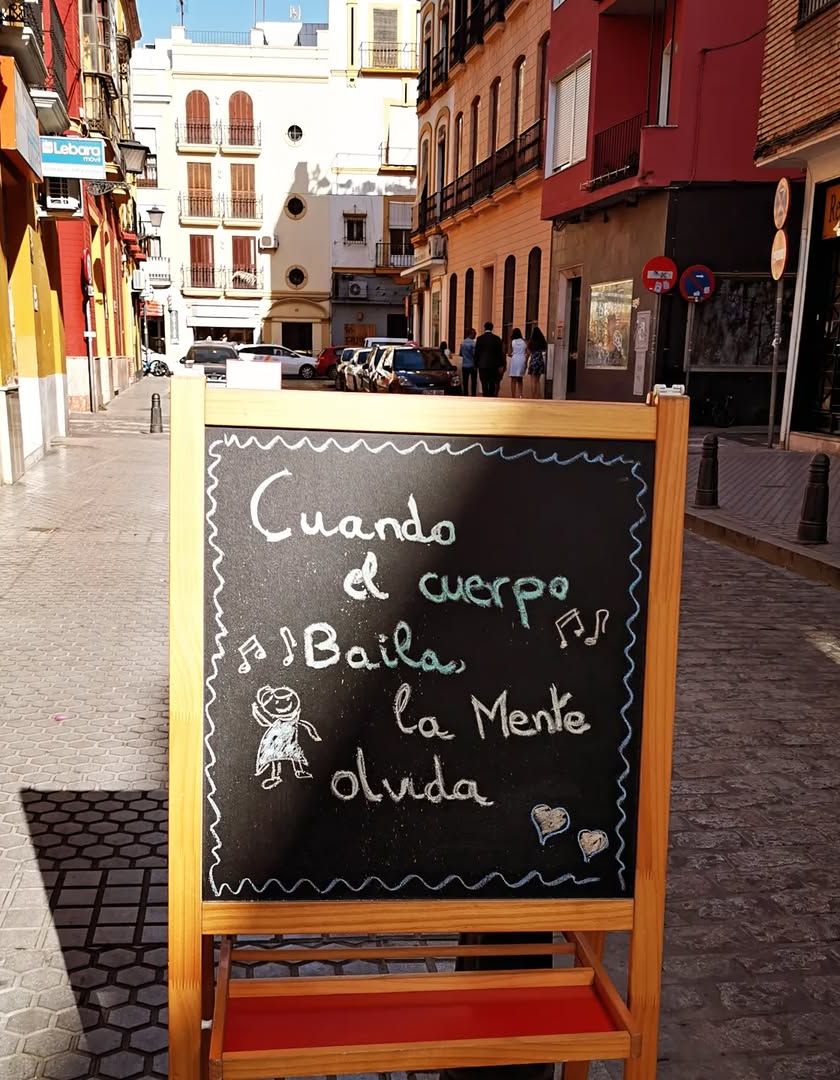 Lebara
móvil
Cuando
el cuerpo
Baila
la Mente
olvida